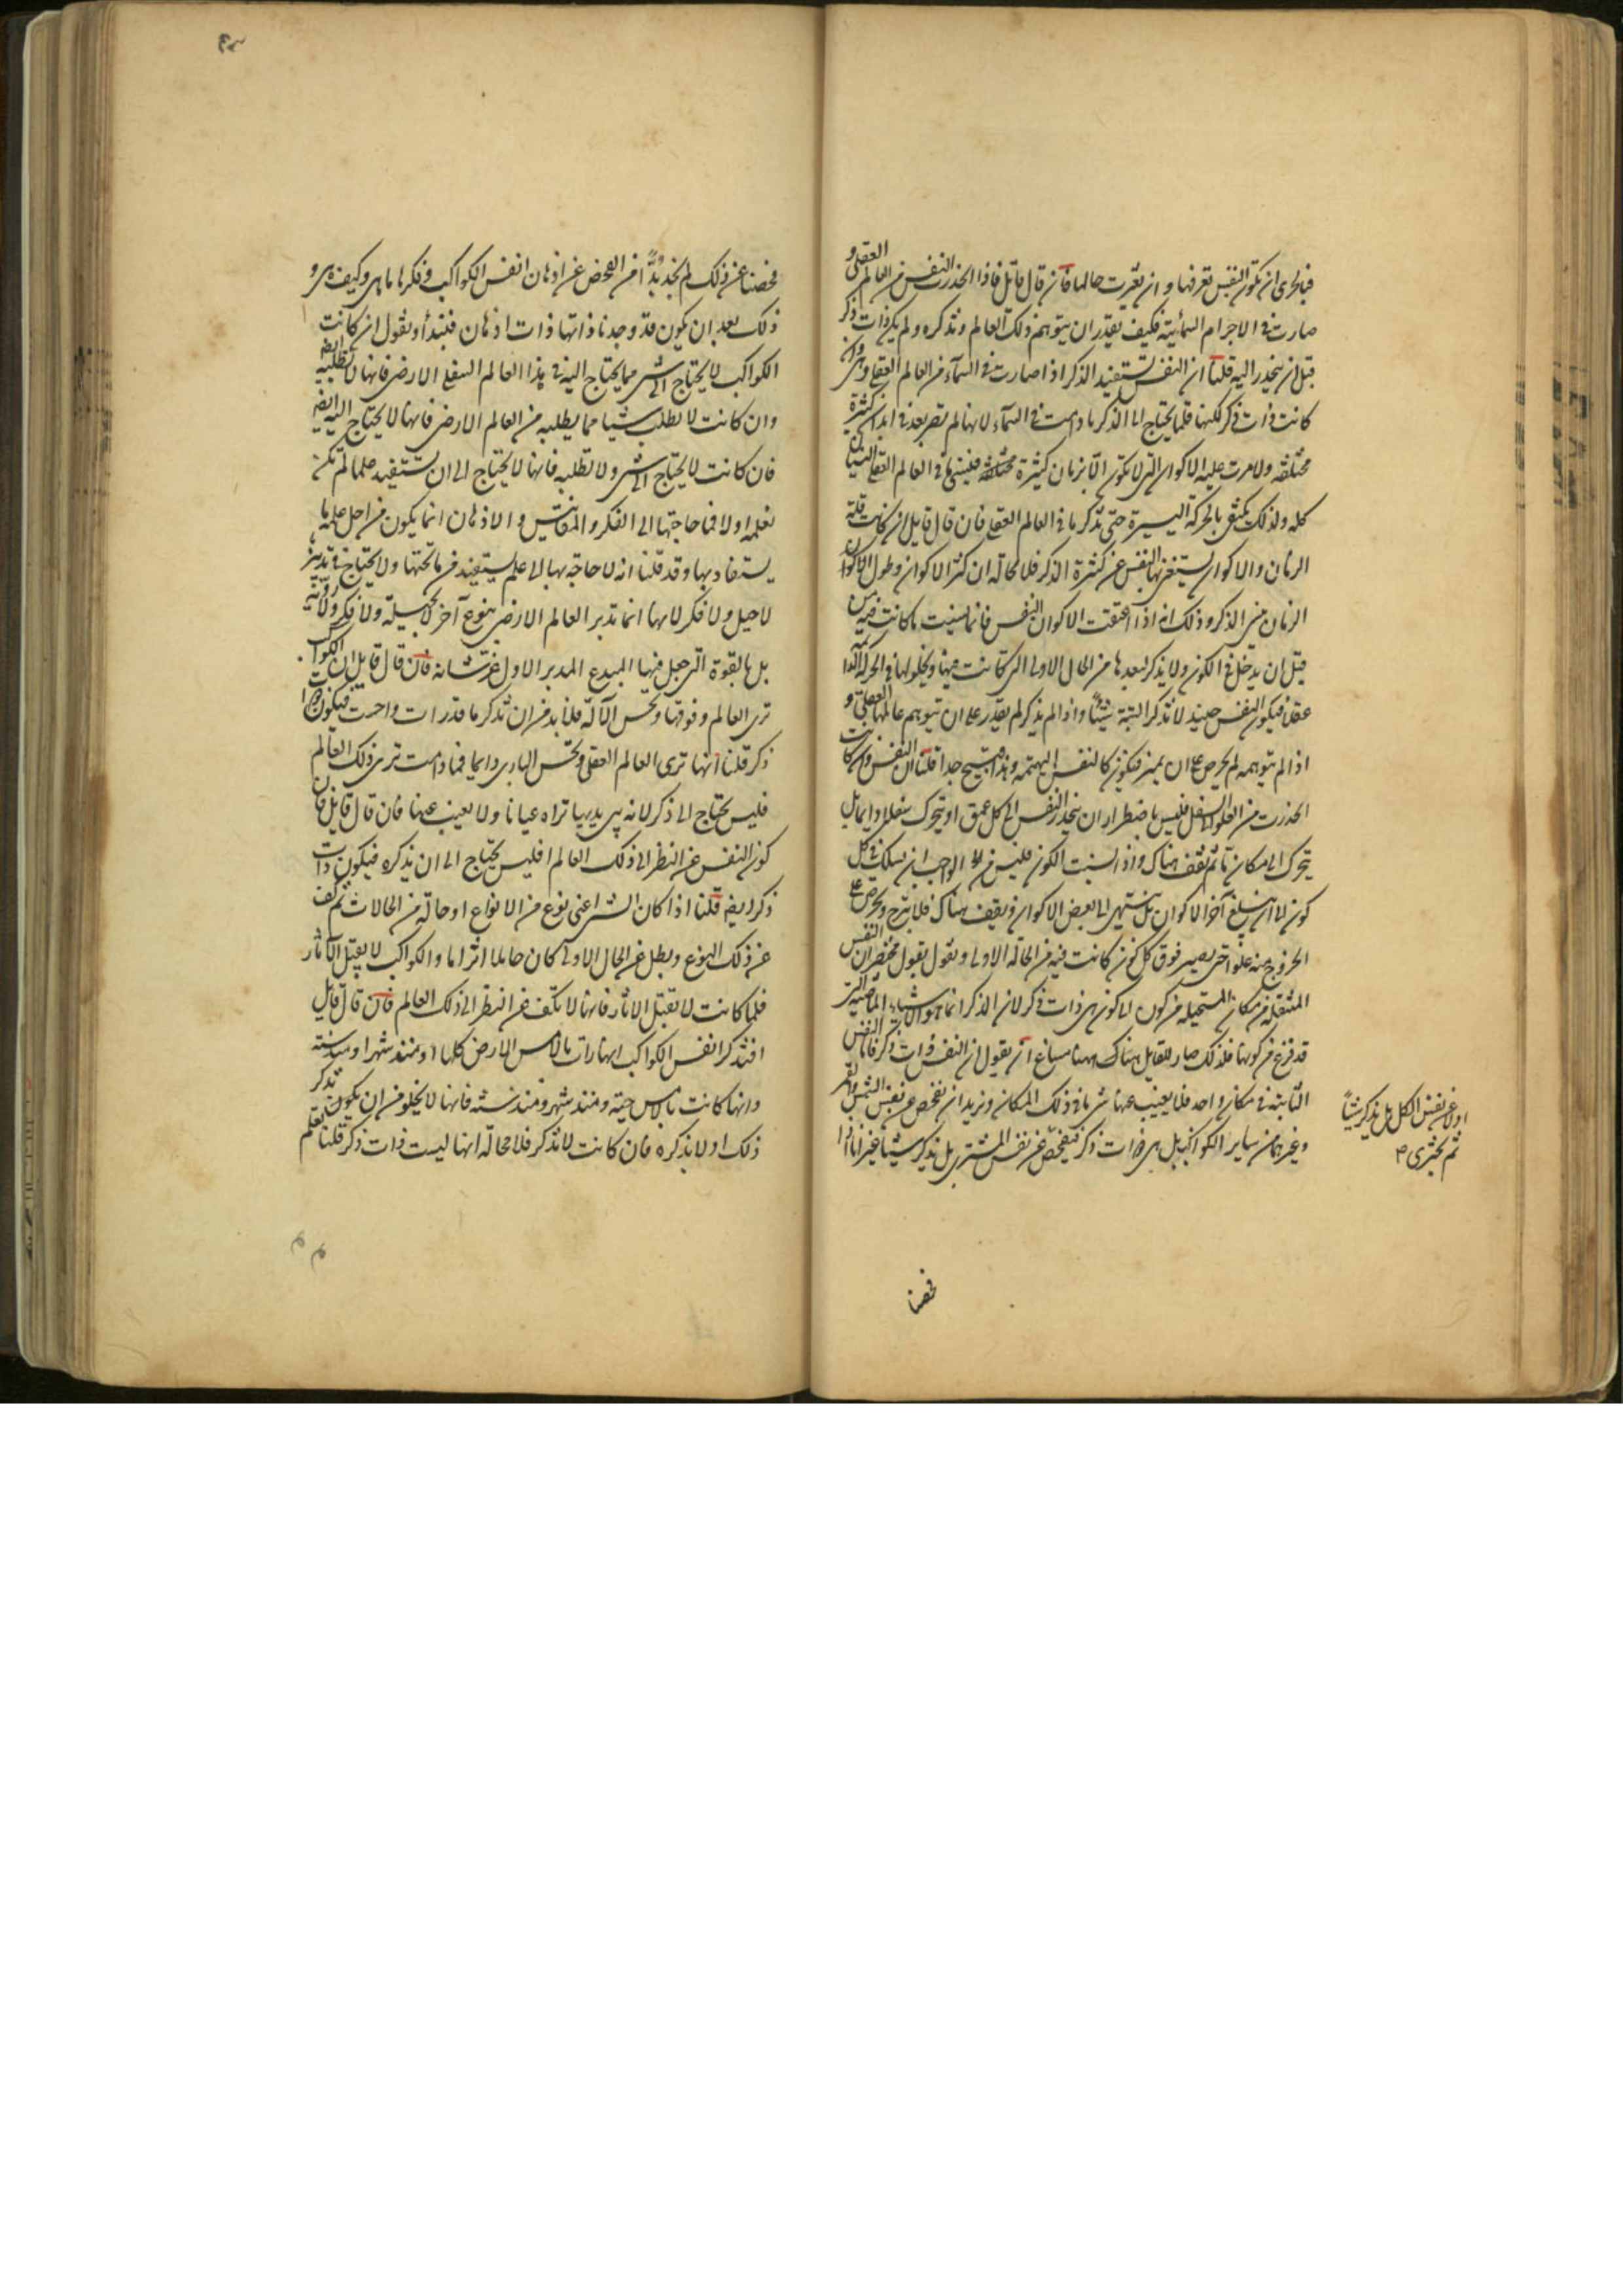 فبالحرى ان تكون النفس تعرفها وان تغيرت حالها فان قال قائل فاذا انحدرت النفس من العالم العقلى و
صارت فى الاجرام السمائية فكيف تقدر ان تتوهم ذلك العالم وتذكره ولم يكن ذات ذكر
قبل ان ينحدر اليه قلنا ان النفس تستفيد الذكر اذا صارت فى السمآء من العالم العقلى وهى وان
كانت ذات ذكر لكنها قلما يحتاج الى الذكر ما دامت فى السمآء لانها لم تصر بعد فى ابدان كثيرة
مختلفة ولا مرت عليه الاكوان التى لا تكون الا بزمان كثيرة مختلفة فينسى ما فى العالم العقلى النسيان
كله ولذلك يكتفى بالحركة اليسيرة حتى تذكر ما فى العالم العقلى فان قال قايل ان كانت قلة
الزمان والاكوان يستغنى بها النفس عن كثرة الذكر فلا محالة ان كثرة الاكوان وطول
الزمان من الذكر وذلك انه اذا اعتقت الاكوان النفس فانما نسيت ما كانت فيه من
قبل ان يدخل فى الكون ولا يذكر لبعدها من الحال الاولى التى كانت فيها
فيكون النفس حينئذ لا تذكر البتة شيئاً واذا لم يذكر لم يقدر على ان تتوهم عالمها العقلى و
اذا لم تتوهمه لم يحرص على ان يميز فيكون كالنفس البهيمية وهذا قبيح جدا قلنا ان النفس وان كانت
انحدرت من العلو الى السفل فليس باضطرار ان ينحدر النفس الى كل عمق او يتحرك سفلا دايما بل
يتحرك الى مكان ما ثم تقف هناك واذا لبست الكون فليس من الواجب ان يسلك فى كل
كون الى ان يبلغ آخر الاكوان بل ينتهى الى بعض الاكوان ويقف هناك فلا يبرح ويحرص على
الخروج منه علوا حتى يصير فوق كل كون كانت فيه من الحالة الاولى ونقول بقول مختصر ان النفس
المنتقلة من مكان المستحيلة من كون الى كون هى ذات ذكر لان الذكر انما هو للاشياء الماضية التى
قد فرغ من كونها فلذلك صار للقايل هناك مساغ ان يقول ان النفس ذات ذكر فاما النفس
الثابتة فى مكان واحد فلا يغيب عنها شى ما فى ذلك المكان ونريد ان نفحص عن نفس الشمس والقمر
وغيرهما من ساير الكواكب بل هى ذات ذكر فنفحص عن نفس المشترى بل يذكر شيئا غير انا اذا
اولا عن نفس الكل بل يذكر شيئاً
ثم نجترى
فحصنا
فحصنا عن ذلك لم نجد بُدّاً من الفحص عن اذهان انفس الكواكب وفكرها ما هى وكيف هى و
ذلك بعد ان يكون قد وجدناها ذات اذهان فنبتدأ ونقول ان كانت
الكواكب لا يحتاج الى شى مما يحتاج اليه فى هذا العالم السفلى الارضى فانها لا تطلبه ايضا
وان كانت لا تطلب شيئا مما يطلبه من العالم الارضى فانها لا يحتاج اليه ايضا
فان كانت لا يحتاج الى شى ولا تطلبه فانها لا يحتاج الى ان يستفيد علما لم تكن
تعلمه اولا فما حاجتها الى الفكر والمقائس والاذهان انما يكون من اجل علم ما
يستفاد بها وقد قلنا انه لا حاجة بها الى علم يستفيد من ما تحتها ولا يحتاج فى تدبير
لا حيل ولا فكر لانها انما تدبر العالم الارضى بنوع آخر لا بحيلة ولا فكر ولا روية
بل بالقوة التى جعل فيها المبدع المدبر الاول عز شانه فان قال قايل ان الكواكب
ترى العالم وفوقها ويحس الآله فلا بد من ان تذكر ما قد رات واحست فيكون ذات
ذكر قلنا انها ترى العالم العقلى ويحس البارى دايما فما دامت ترى ذلك العالم
فليس يحتاج الى ذكر لانه بين يديها تراه عيانا ولا يغيب عنها فان قال قايل فان
كون النفس عن النظر الى ذلك العالم افليس يحتاج الى ان يذكره فيكون ذات
ذكر ايضا قلنا اذا كان الشى اعنى نوع من الانواع او حالة من الحالات ثم كف
عن ذلك النوع وبطل عن الحال الاولى كان حاملا اثرا ما والكواكب لا يقبل الآثار
فلما كانت لا تقبل الاثار فانها لا تكف عن النظر الى ذلك العالم فان قال قايل
افتذكر انفس الكواكب انها رات بالامس الارض كلها او منذ شهر او منذ سنة
وانها كانت بالامس حية ومنذ شهر ومنذ سنة فانها لا يخلو من ان يكون تذكر
ذلك او لا يذكره فان كانت لا تذكر فلا محالة انها ليست ذات ذكر قلنا تعلم